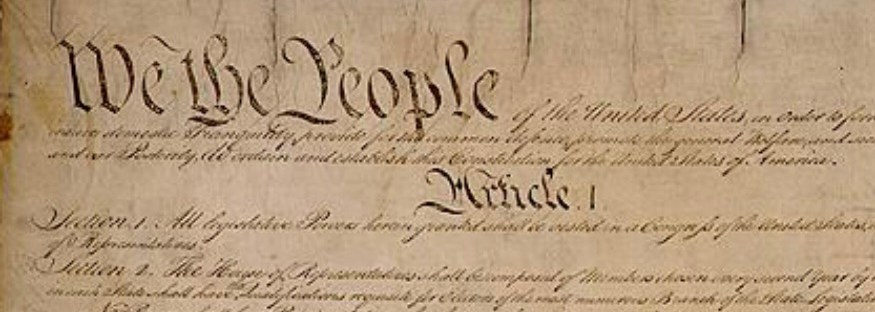 We the People of the United States, in Order to form
insure domestic Tranquility, provide for the common defence, promote the general Welfare, and
and our Posterity, do ordain and establish this Constitution for the United States of America.
Article. I.
Section. 1. All legislative Powers herein granted shall be vested in a Congress of the United States,
of Representatives.
Section. 2. The House of Representatives shall be composed of Members chosen every second Year by
in each State shall have Qualifications requisite for Electors of the most numerous Branch of the State Legislature